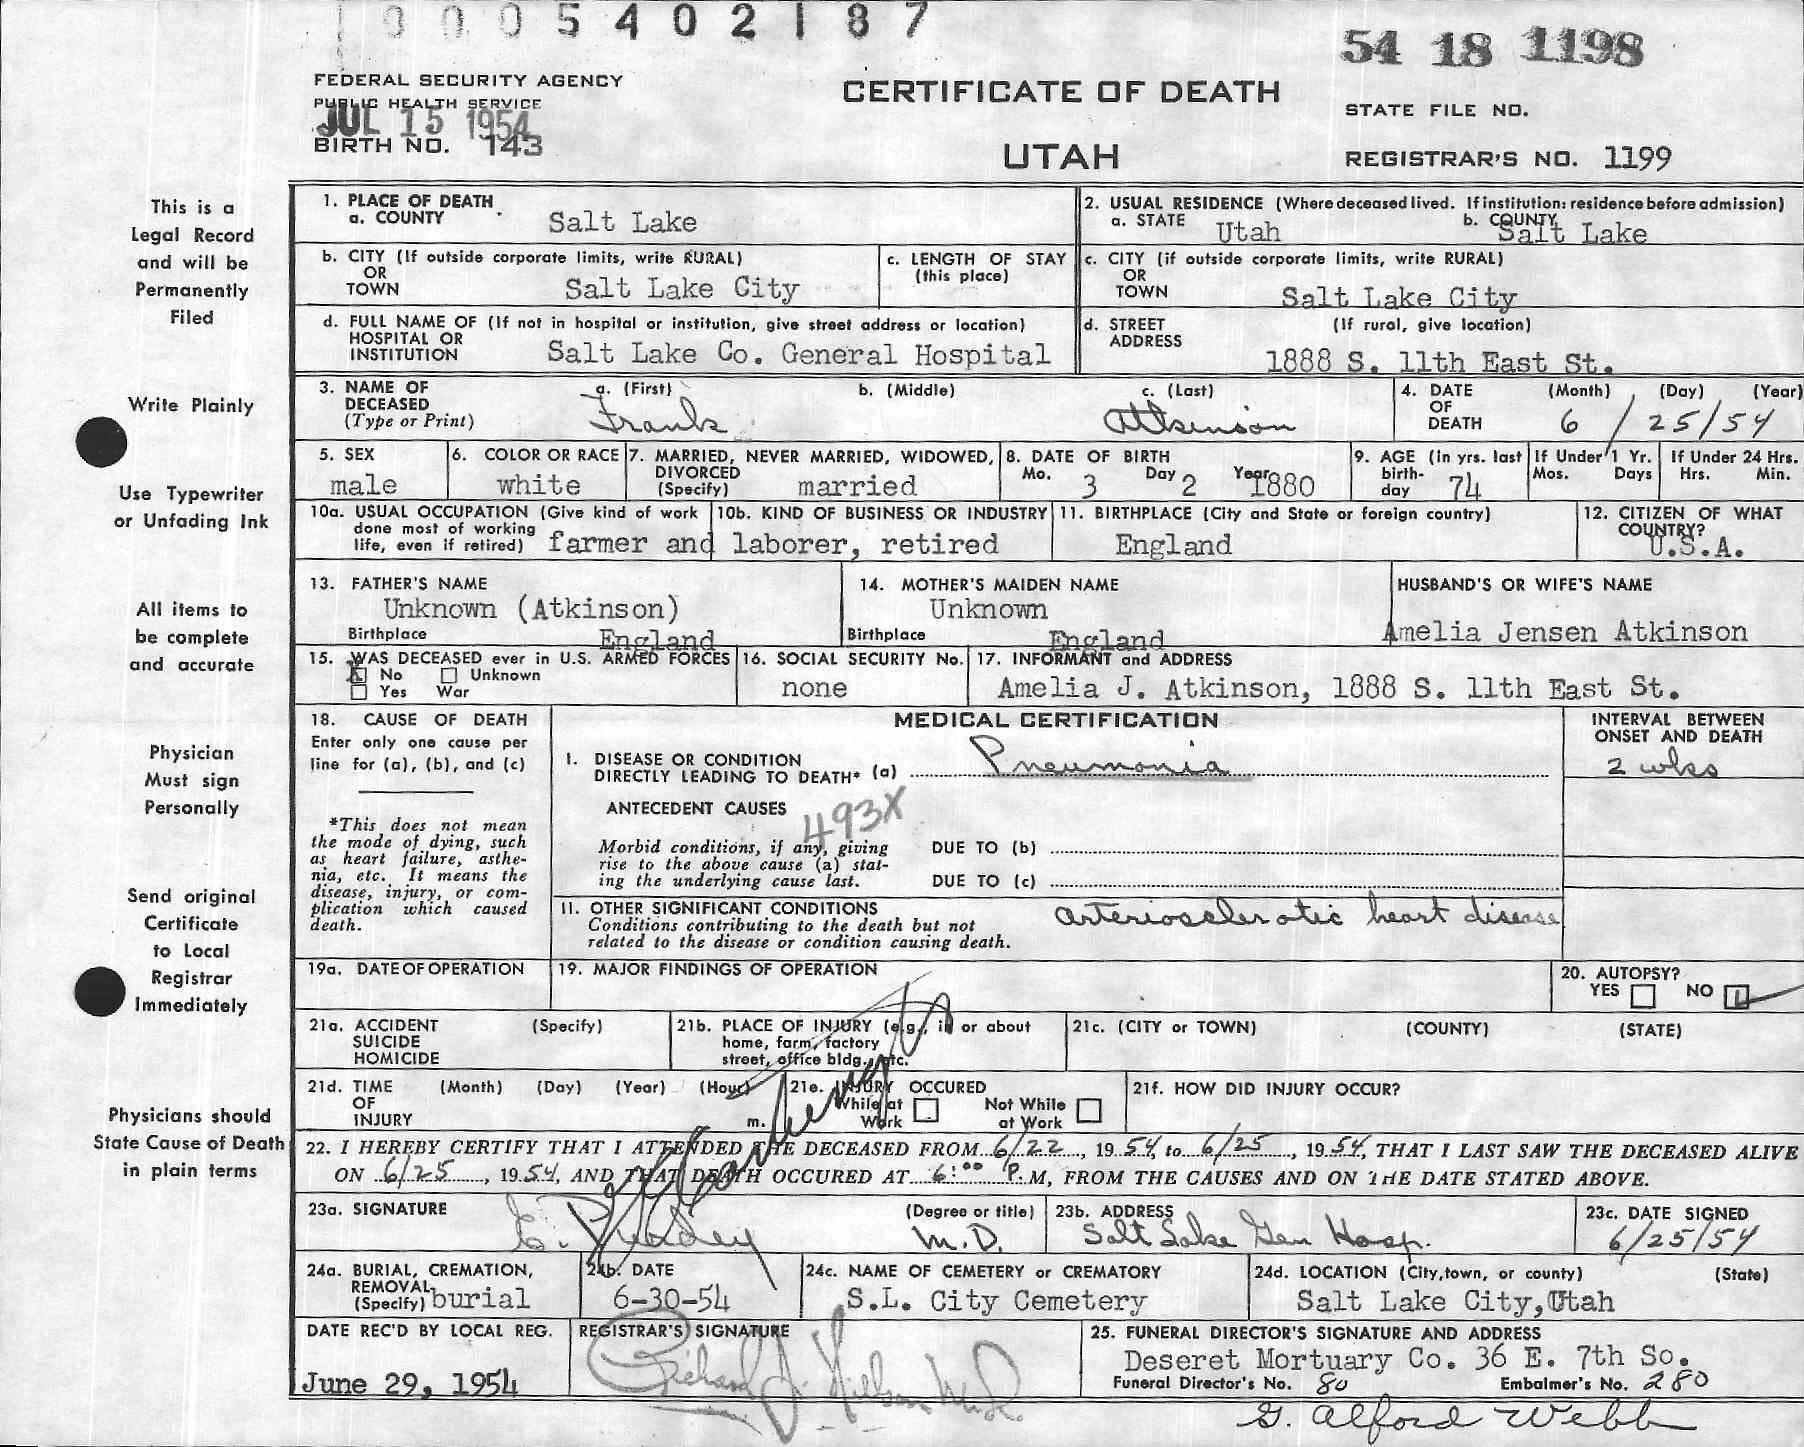 1 0 0 0 5 4 0 2 1 8 7
54 18 1198
FEDERAL SECURITY AGENCY
PUBLIC HEALTH SERVICE
JUL 15 1954
BIRTH NO. 143
CERTIFICATE OF DEATH
UTAH
STATE FILE NO.
REGISTRAR'S NO. 1199
This is a
Legal Record
and will be
Permanently
Filed
Write Plainly
Use Typewriter
or Unfading Ink
All items to
be complete
and accurate
Physician
Must sign
Personally
Send original
Certificate
to Local
Registrar
Immediately
Physicians should
State Cause of Death
in plain terms
1. PLACE OF DEATH
a. COUNTY Salt Lake
2. USUAL RESIDENCE (Where deceased lived. If institution: residence before admission)
a. STATE Utah b. COUNTY Salt Lake
b. CITY (If outside corporate limits, write RURAL)
OR
TOWN Salt Lake City
c. LENGTH OF STAY
(this place)
c. CITY (if outside corporate limits, write RURAL)
OR
TOWN Salt Lake City
d. FULL NAME OF (If not in hospital or institution, give street address or location)
HOSPITAL OR
INSTITUTION Salt Lake Co. General Hospital
d. STREET (If rural, give location)
ADDRESS
1888 S. 11th East St.
3. NAME OF a. (First) b. (Middle) c. (Last)
DECEASED
(Type or Print) Frank Atkinson
4. DATE (Month) (Day) (Year)
OF
DEATH 6 / 25/54
5. SEX
male
6. COLOR OR RACE
white
7. MARRIED, NEVER MARRIED, WIDOWED,
DIVORCED
(Specify) married
8. DATE OF BIRTH
Mo. 3 Day 2 Year 1880
9. AGE (In yrs. last
birth-
day 74
If Under 1 Yr.
Mos. Days
If Under 24 Hrs.
Hrs. Min.
10a. USUAL OCCUPATION (Give kind of work
done most of working
life, even if retired) farmer and
10b. KIND OF BUSINESS OR INDUSTRY
laborer, retired
11. BIRTHPLACE (City and State or foreign country)
England
12. CITIZEN OF WHAT
COUNTRY?
U.S.A.
13. FATHER'S NAME
Unknown (Atkinson)
Birthplace England
14. MOTHER'S MAIDEN NAME
Unknown
Birthplace England
HUSBAND'S OR WIFE'S NAME
Amelia Jensen Atkinson
15. WAS DECEASED ever in U.S. ARMED FORCES
X No Unknown
Yes War
16. SOCIAL SECURITY No.
none
17. INFORMANT and ADDRESS
Amelia J. Atkinson, 1888 S. 11th East St.
18. CAUSE OF DEATH
Enter only one cause per
line for (a), (b), and (c)
*This does not mean
the mode of dying, such
as heart failure, asthe-
nia, etc. It means the
disease, injury, or com-
plication which caused
death.
MEDICAL CERTIFICATION
INTERVAL BETWEEN
ONSET AND DEATH
I. DISEASE OR CONDITION
DIRECTLY LEADING TO DEATH* (a) Pneumonia
2 wks
ANTECEDENT CAUSES
493X
Morbid conditions, if any, giving
rise to the above cause (a) stat-
ing the underlying cause last.
DUE TO (b)
DUE TO (c)
11. OTHER SIGNIFICANT CONDITIONS
Conditions contributing to the death but not
related to the disease or condition causing death.
arteriosclerotic heart disease
19a. DATE OF OPERATION
19. MAJOR FINDINGS OF OPERATION
20. AUTOPSY?
YES NO
21a. ACCIDENT (Specify)
SUICIDE
HOMICIDE
21b. PLACE OF INJURY (e.g., in or about
home, farm, factory
street, office bldg., etc.
21c. (CITY or TOWN) (COUNTY) (STATE)
21d. TIME (Month) (Day) (Year) (Hour)
OF
INJURY m.
21e. INJURY OCCURED
While at
Work
Not While
at Work
21f. HOW DID INJURY OCCUR?
22. I HEREBY CERTIFY THAT I ATTENDED THE DECEASED FROM 6/22, 1954, to 6/25, 1954, THAT I LAST SAW THE DECEASED ALIVE
ON 6/25, 1954, AND THAT DEATH OCCURED AT 6:00 P.M, FROM THE CAUSES AND ON THE DATE STATED ABOVE.
23a. SIGNATURE (Degree or title)
E. M.D.
23b. ADDRESS
Salt Lake Gen Hosp.
23c. DATE SIGNED
6/25/54
24a. BURIAL, CREMATION,
REMOVAL
(Specify) burial
24b. DATE
6-30-54
24c. NAME OF CEMETERY or CREMATORY
S.L. City Cemetery
24d. LOCATION (City, town, or county) (State)
Salt Lake City, Utah
DATE REC'D BY LOCAL REG.
June 29, 1954
REGISTRAR'S SIGNATURE
Richard J. Nelson
25. FUNERAL DIRECTOR'S SIGNATURE AND ADDRESS
Deseret Mortuary Co. 36 E. 7th So.
Funeral Director's No. 80 Embalmer's No. 280
G. Alford Webb